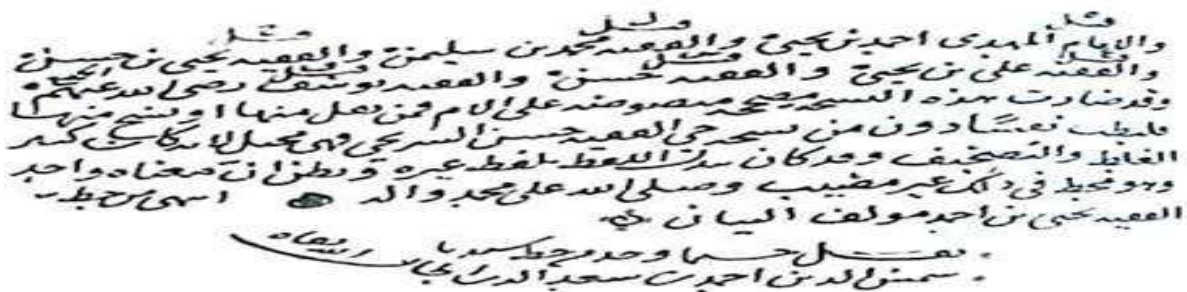 والامام المهدى احمد بن يحيى والفقيه محمد بن سليمن والفقيه يحيى بن حسن
والفقيه على بن يحيى والفقيه حسن والفقيه يوسف رضى الله عنهم
وقد صارت هذه النسخه صحيحه على الام فمن نقل منها او نسخ منها
فليطب نفسًا دون من نسخه حى الفقيه حسن فهى محيل لانه كان كثير
الغلط والتصحيف وقد كان يبدل اللفظ بلفظ غيره ويظن ان معناه واحد
وهو مخبط فى ذلك غير مصيب وصلى الله على محمد واله انتهى من خط
الفقيه يحيى بن احمد مولف البيان
نقل حسبما وجد بخط سيدنا
شمس الدين احمد بن سعد الدين ابقاه الله